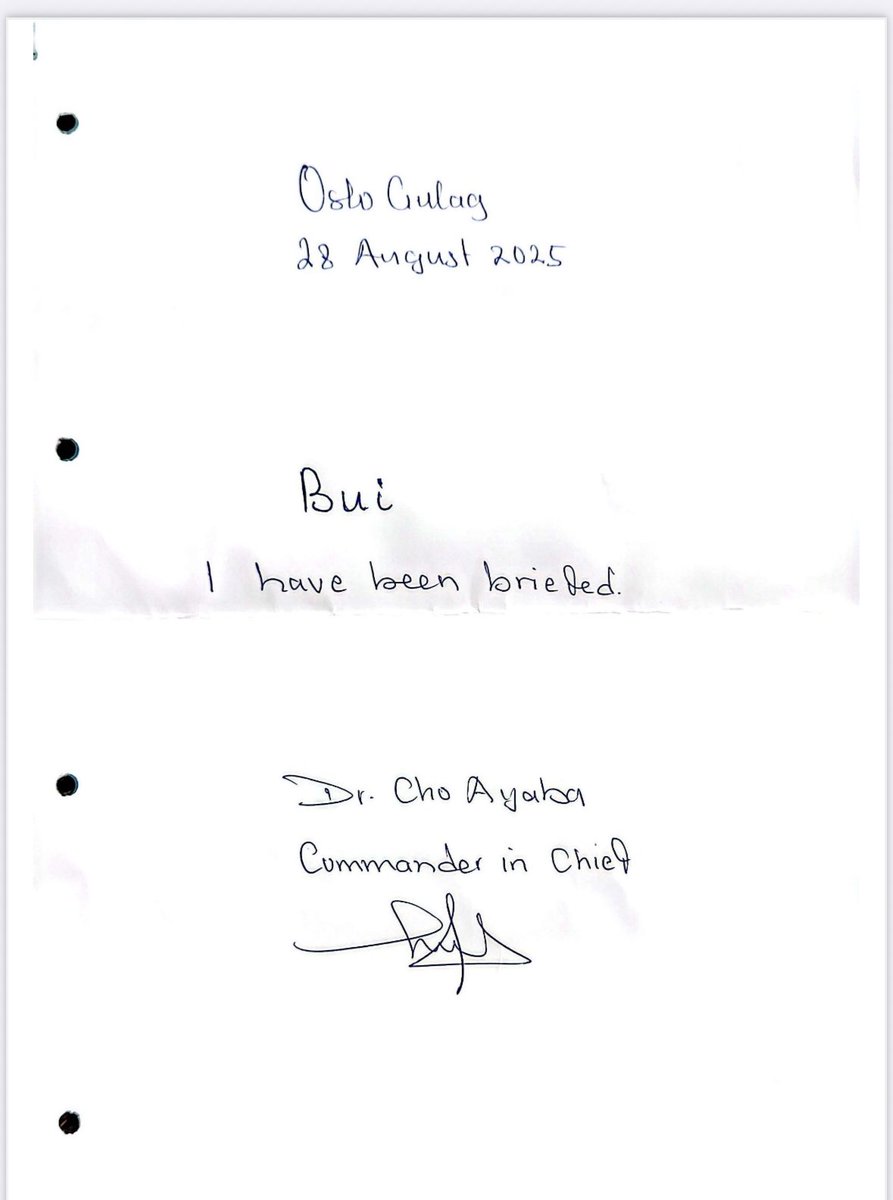 Oslo Gulag
28 August 2025
Bui
I have been briefed.
Dr. Cho Ayaba
Commander in Chief